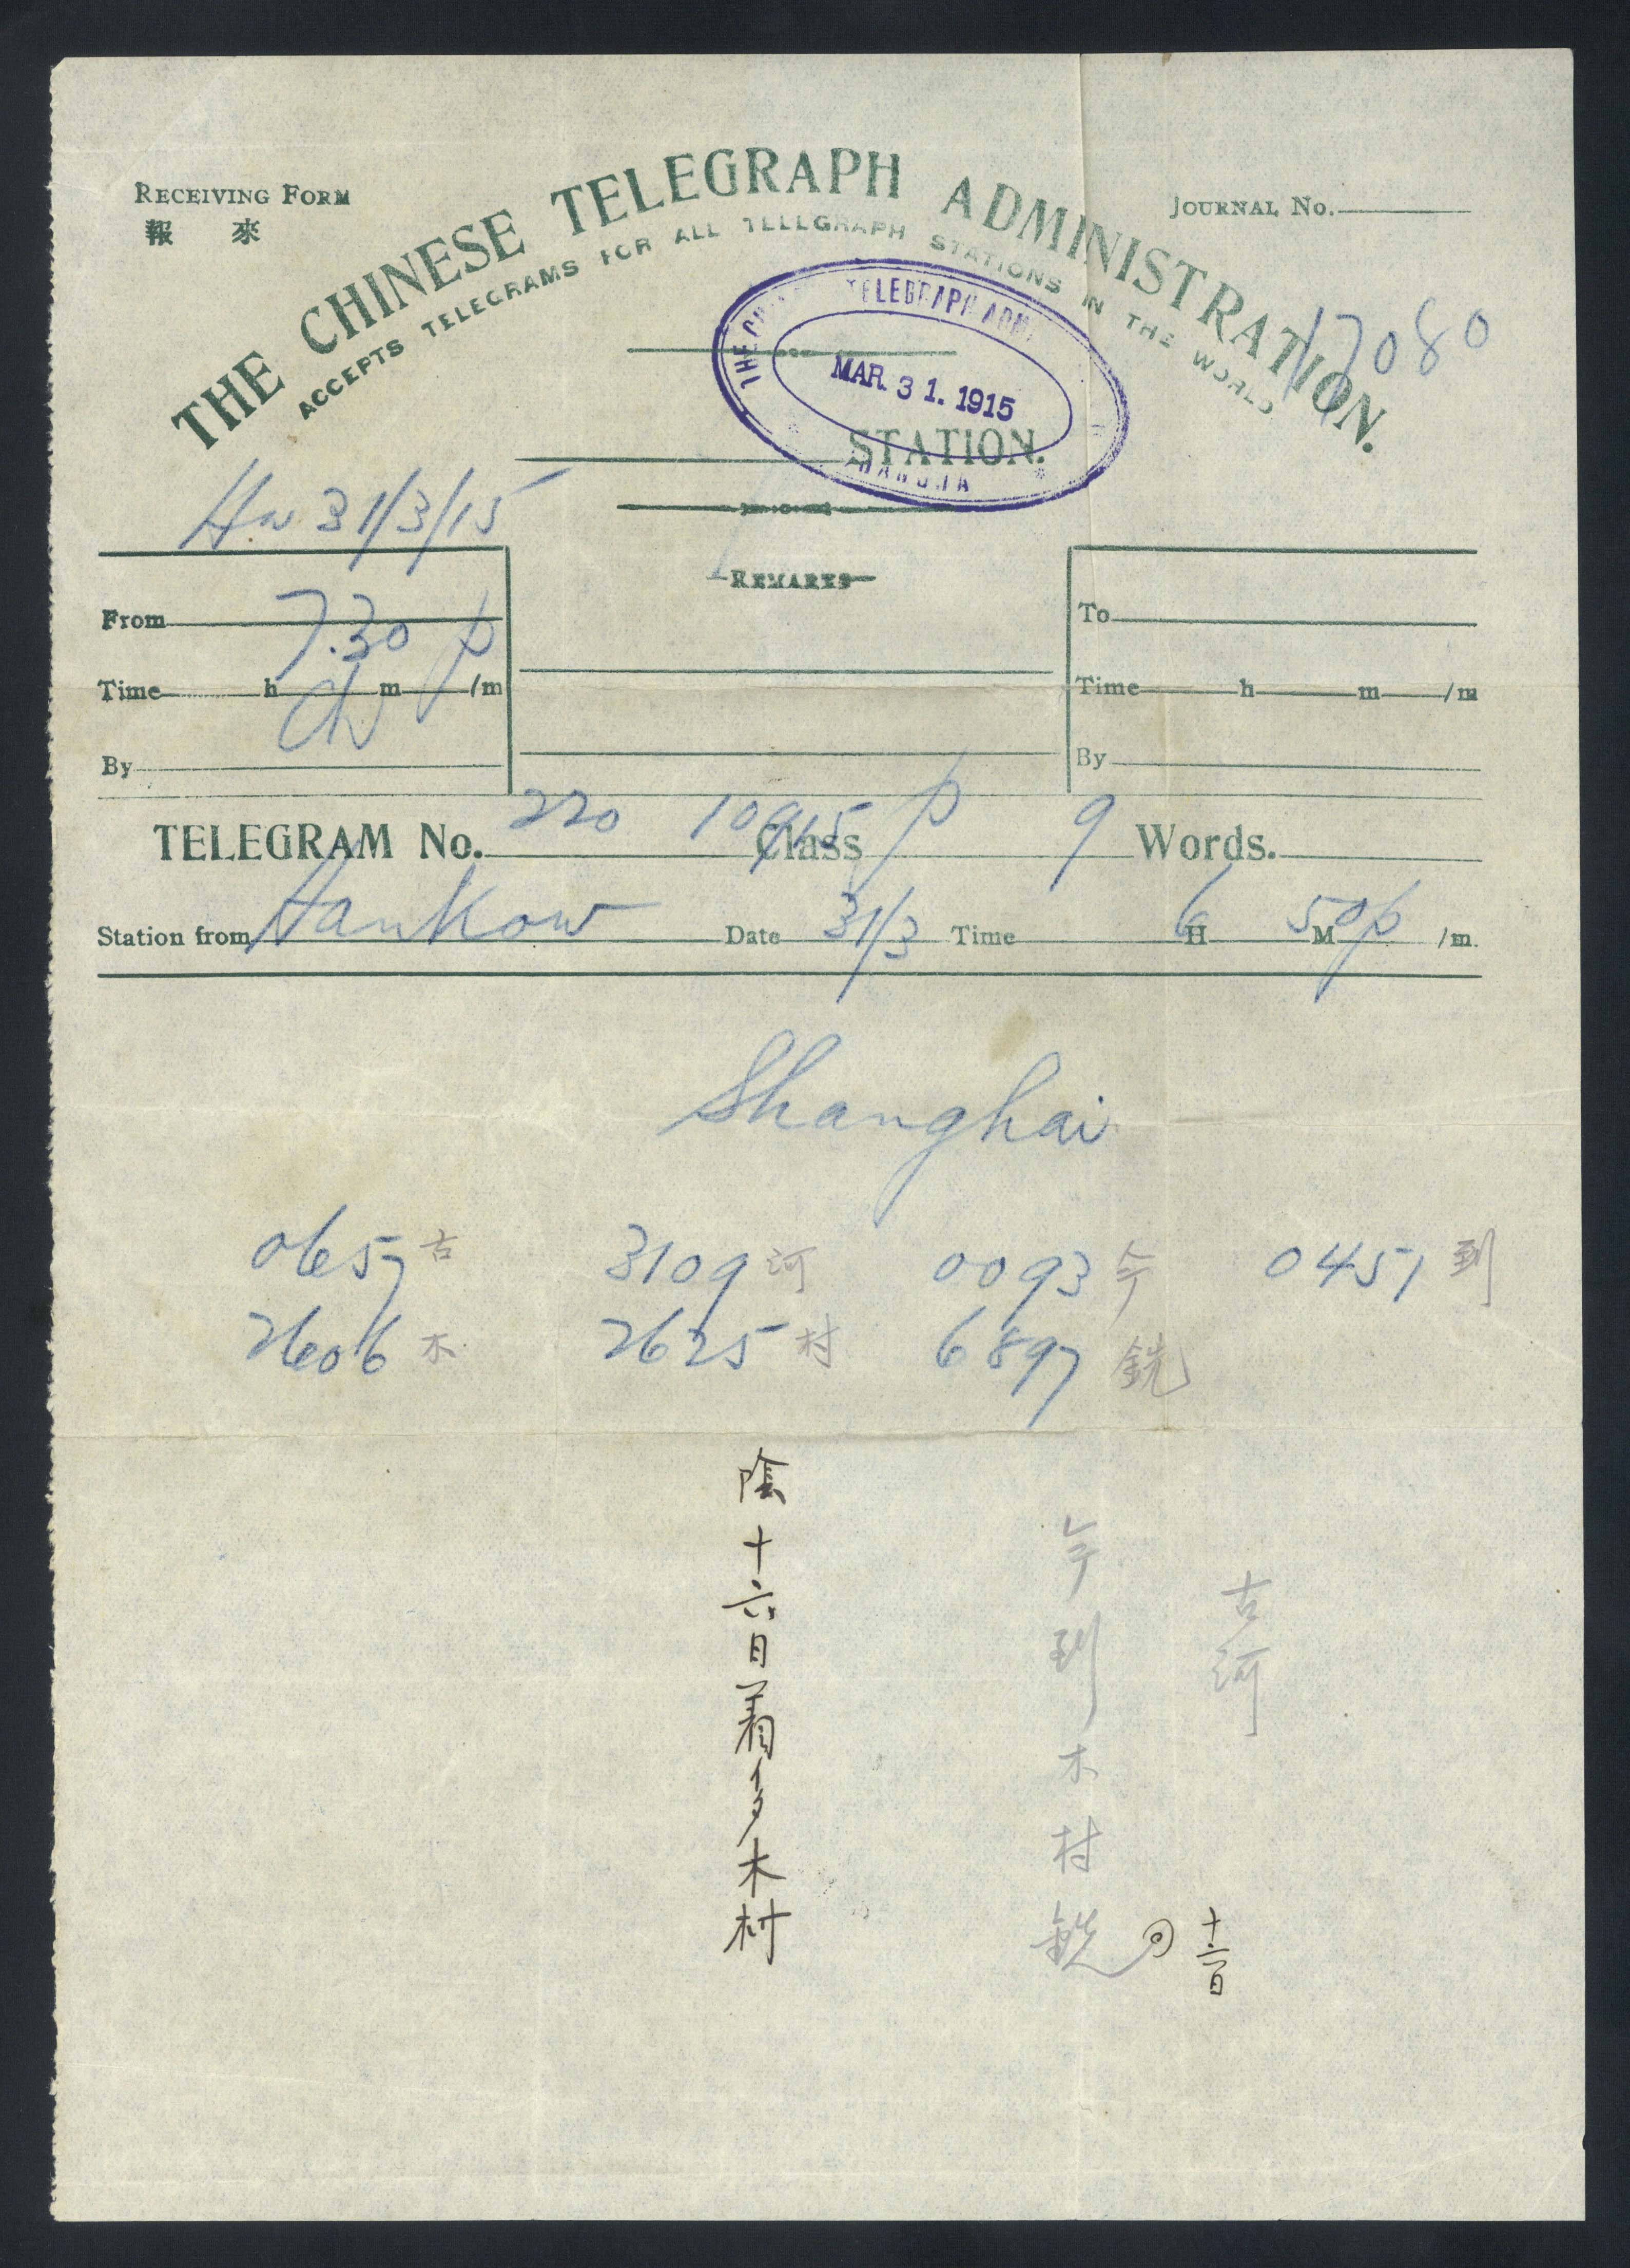 RECEIVING FORM
報 來
THE CHINESE TELEGRAPH ADMINISTRATION.
ACCEPTS TELEGRAMS FOR ALL TELEGRAPH STATIONS IN THE WORLD
JOURNAL No.
17080
TELEGRAPH
MAR. 31. 1915
STATION.
31/3/15
REMARKS
From
7.30 p
To
Time h m /m
Time h m /m
By
By
TELEGRAM No. 220 Class p 9 Words.
Station from Hankow Date 31/3 Time 6 H 50 M p /m.
Shanghai
0657 古 3109 河 0093 今 0451 到
2606 木 2625 村 6897 銑
古河
今到木村銑
十六日
陰十六日着多木村